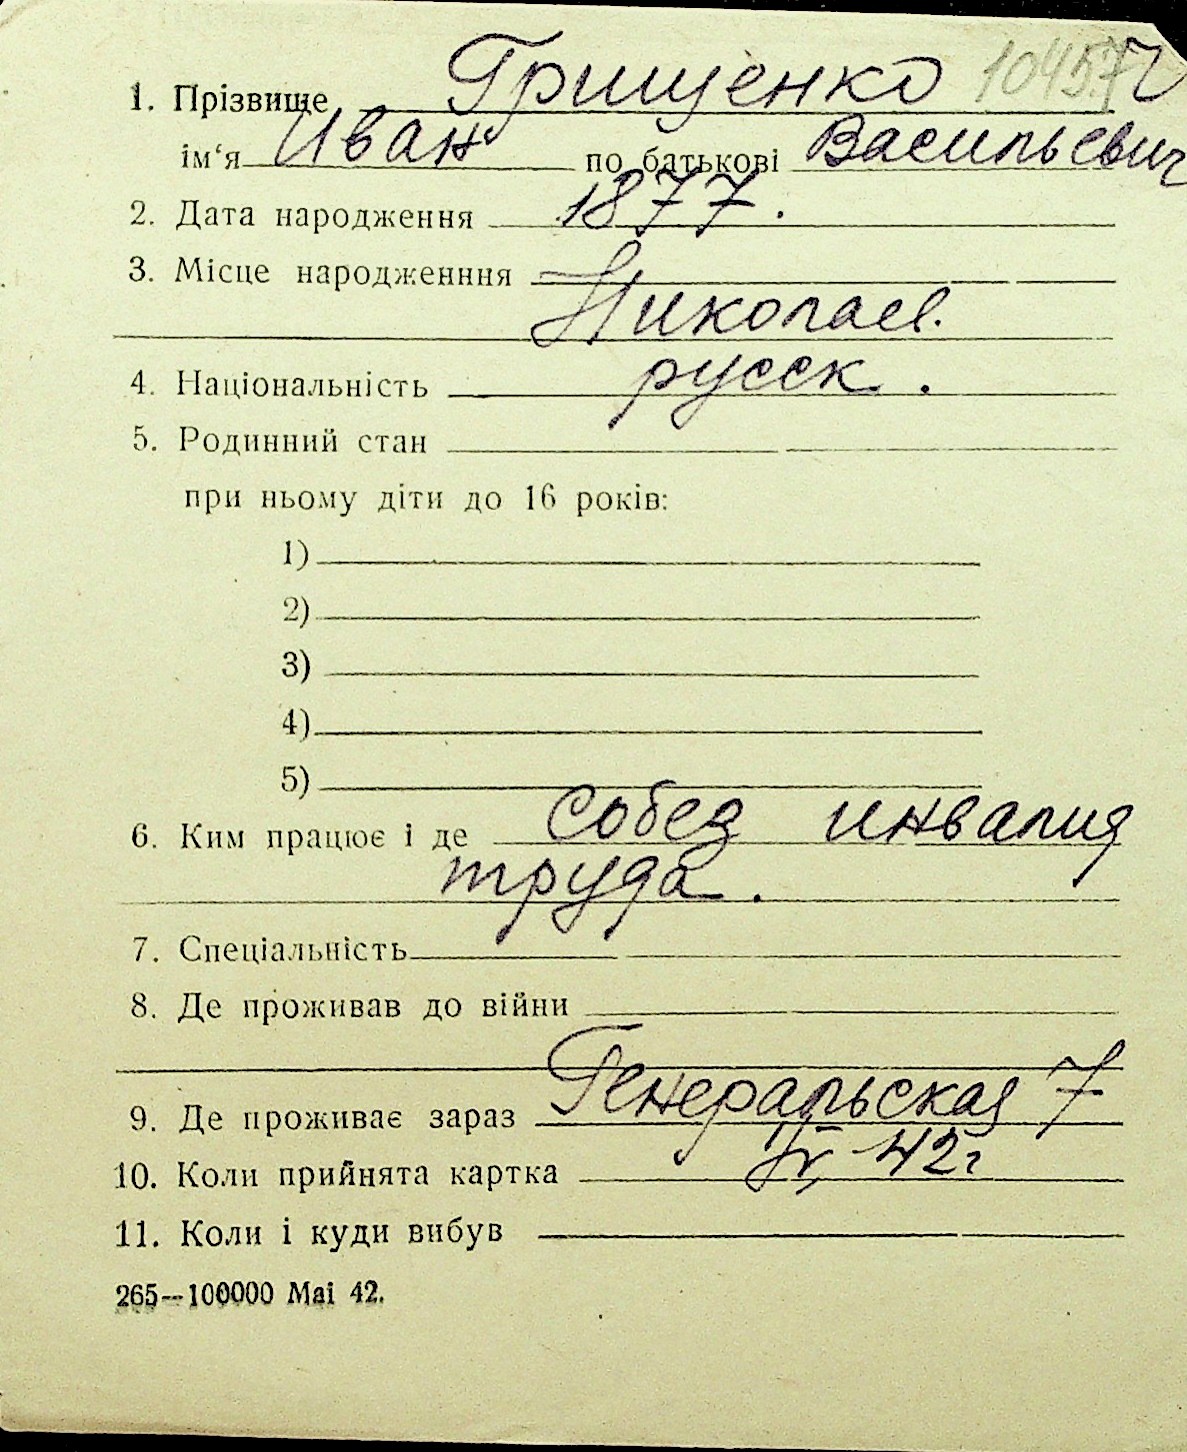 1. Прізвище Грищенко 10457
ім‘я Иван по батькові Васильевич
2. Дата народження 1877.
3. Місце народженння
Николаев.
4. Національність русск.
5. Родинний стан
при ньому діти до 16 років:
1)
2)
3)
4)
5)
6. Ким працює і де собед инвалид
труда.
7. Спеціальність
8. Де проживав до війни
9. Де проживає зараз Генеральская 7
10. Коли прийнята картка 42г
11. Коли і куди вибув
265—100000 Mai 42.